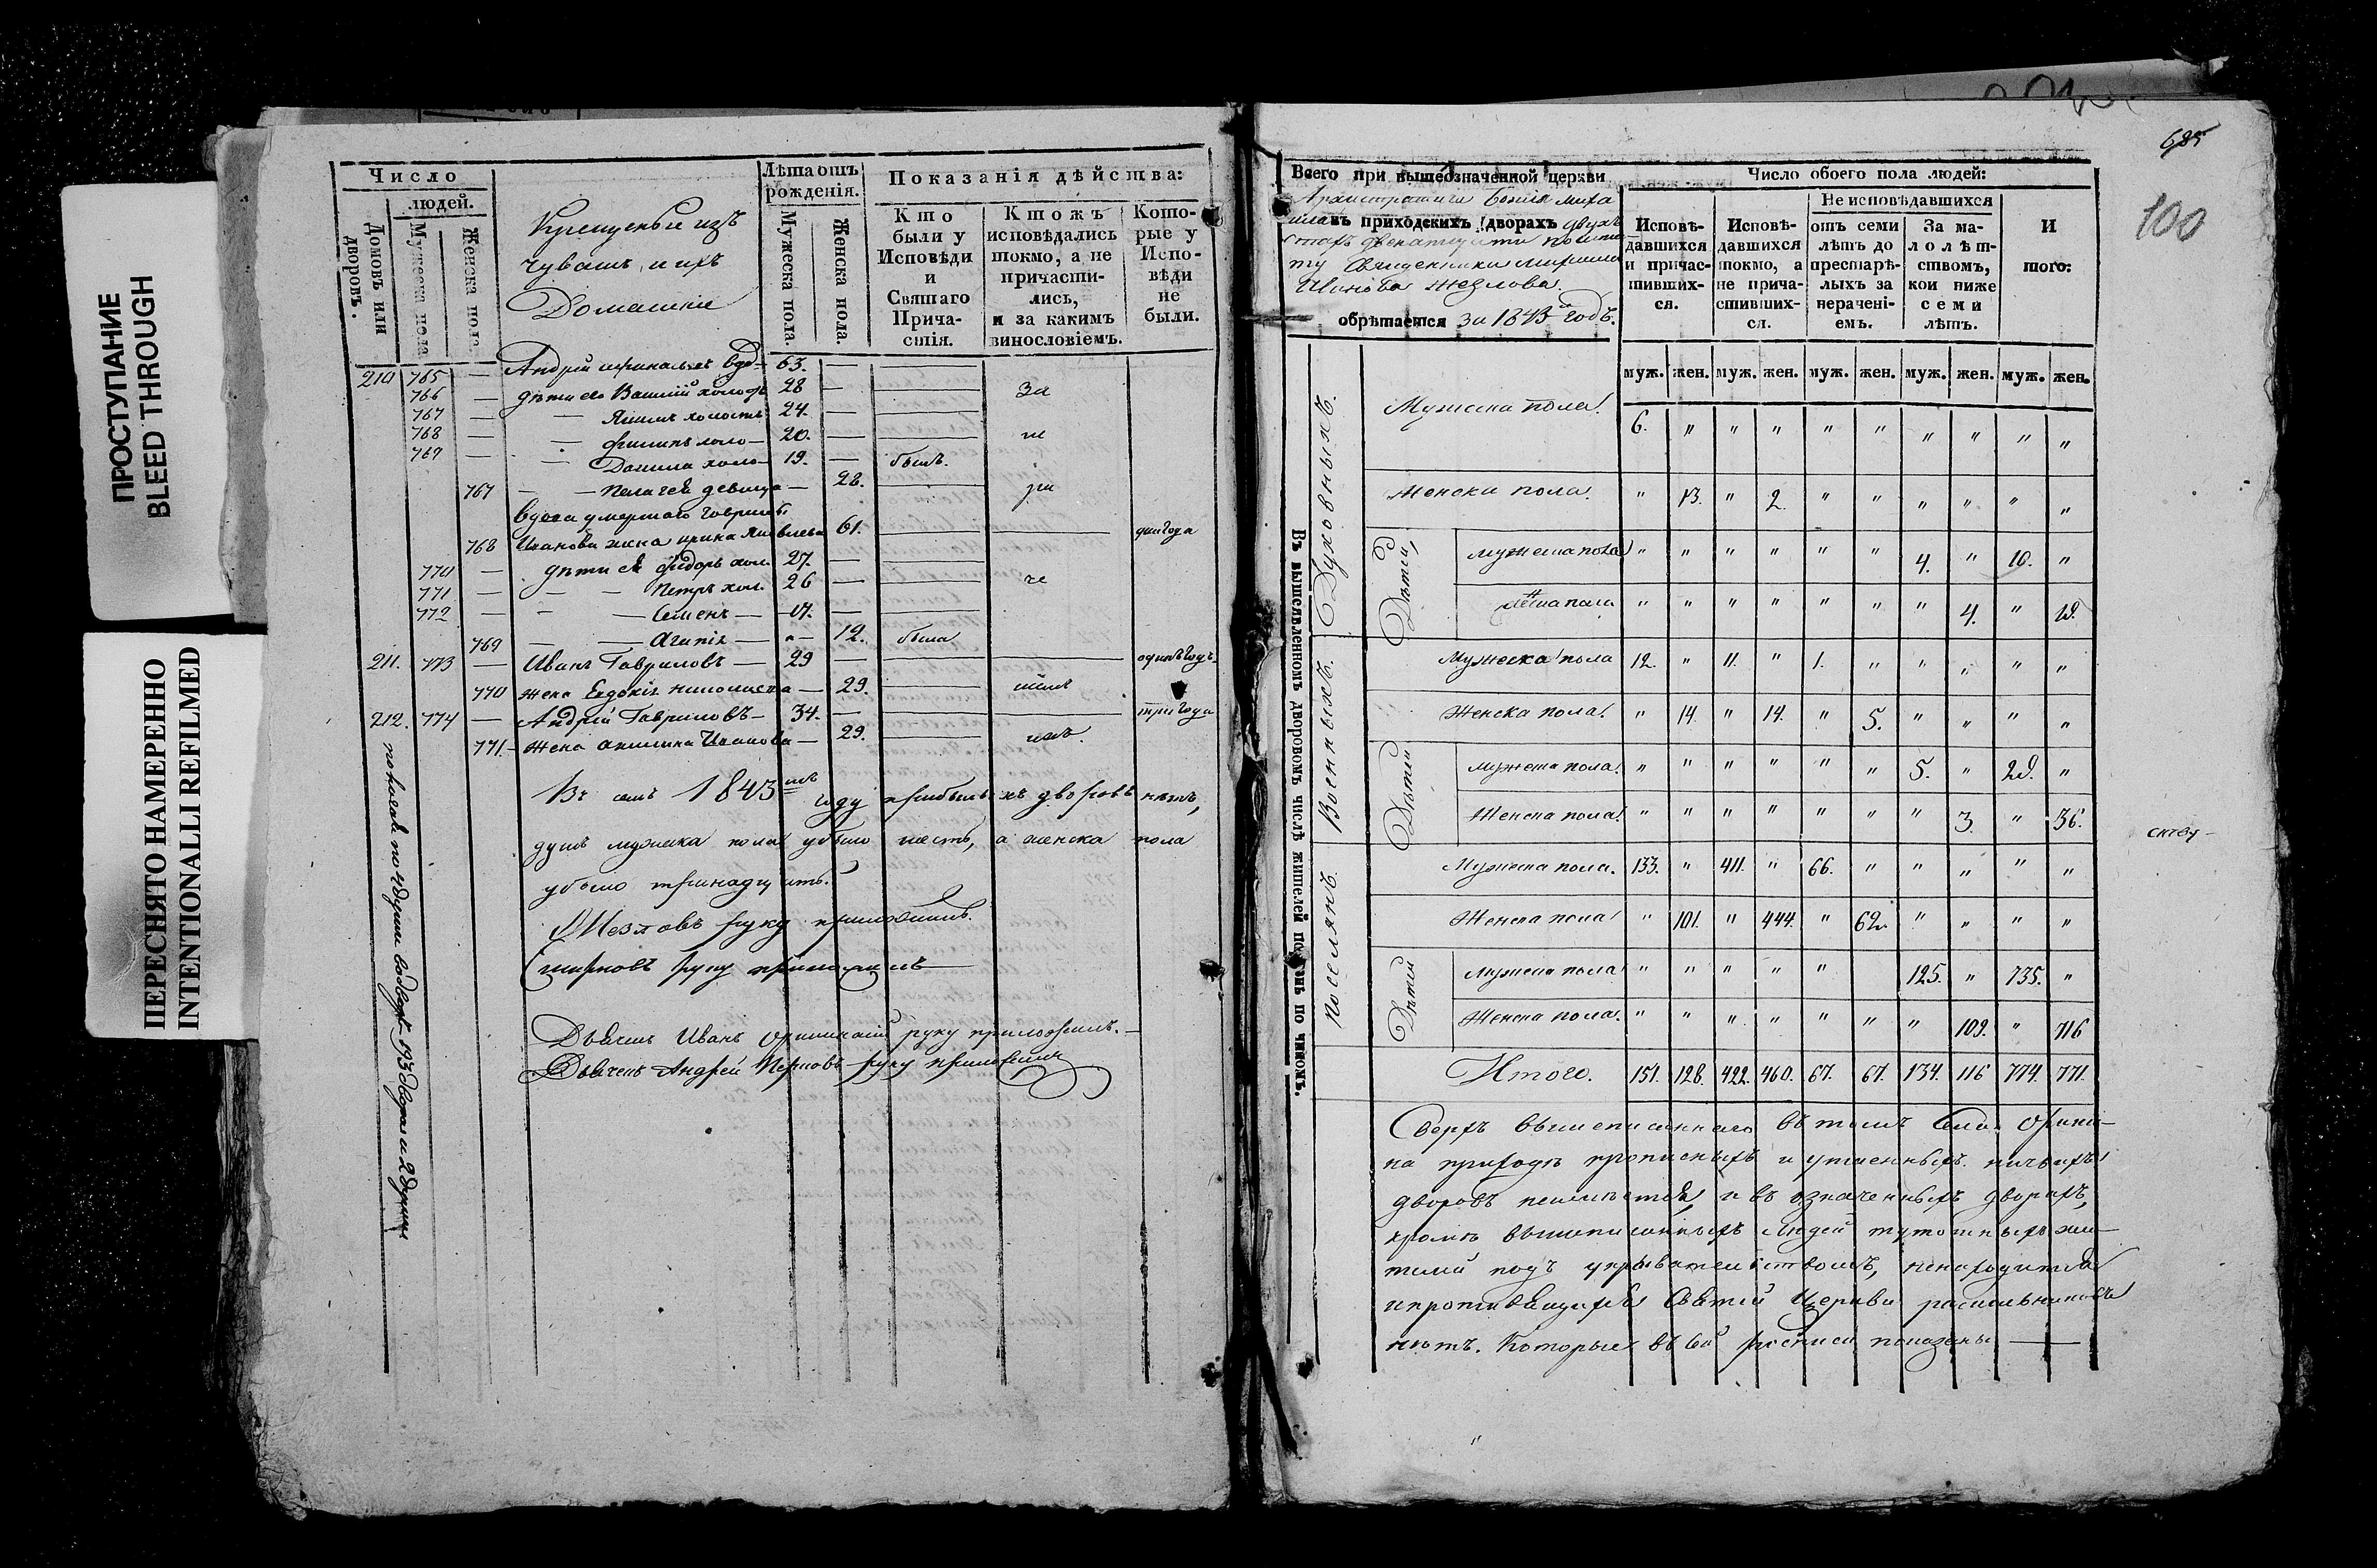 ПРОСТУПАНИЕ
BLEED THROUGH
ПЕРЕСНЯТО НАМЕРЕННО
INTENTIONALLI REFILMED
Число
людей.
Домовъ или дворовъ.
Мужеска пола
Женска пола.
Крещеныи изъ
чувашъ, и ихъ
Домашнии
Лѣта отъ
рожденія.
Мужеска пола.
Женска пола.
Показанія дѣйства:
Кто
были у
Исповѣди
и
Святаго
Прича-
стія.
Ктожъ
исповѣдались
токмо, а не
причасти-
лись,
и за какимъ
винословіемъ.
Кото-
рые у
Испо-
вѣди
не
были.
210 765 — Андрей вдо— 63. —
766 — дѣти его Василий холостъ 28 — за
767 — холостъ 24. —
768 — — Филипъ холо— 20. — не
769 — — Данила холо— 19. — былъ.
767 — — Пелагея девица — 28. ра
вдова умершаго Гаврила
768 Иванова жена ирина Яковлева 61. два года
770 — дѣти ея Фёдоръ хол. 27. —
771 — — — Петръ хол. 26 — че
772 — — — Семенъ — 17. —
769 — — Агапія — 12. была
211. 773 — Иванъ Гавриловъ — 29 — одинъ годъ
770 жена Евдокія — 29.
212. 774 — Андрей Гавриловъ — 34. — три года
771 — жена акилина Иванова — 29. имъ.
Въ семъ 1843мъ году прибылыхъ дворовъ нѣтъ,
душъ мужеска пола убыло шесть, а женска пола
убыло тринадцать.
Жезловъ руку приложилъ.
Смирновъ руку приложилъ
Дьячекъ Иванъ Орининскій руку приложилъ. —
Дьячекъ Андрей руку приложилъ
685
100
Всего при вышеозначенной церкви
Архистратига Божія Миха
ила въ приходскихъ дворахъ двухъ
стахъ двенатцати по
ту Священника
Иванова Жезлова
обрѣтается за 1843й годъ.
Число обоего пола людей:
Исповѣ-
давшихся
и причас-
тивших-
ся.
Исповѣ-
давшихся
токмо, а
не прича-
стивших-
ся.
Не исповѣдавшихся
отъ семи
лѣтъ до
престарѣ-
лыхъ за
нерачені-
емъ.
За ма-
лолѣт-
ствомъ,
кои ниже
семи
лѣтъ.
И
того:
муж. жен. муж. жен. муж. жен. муж. жен. муж. жен.
Въ вышеявленномъ дворовомъ числѣ жителей по чиномъ.
Духовныхъ.
Мужеска пола. 6. " " " " " " " " "
Женска пола. " 13. " 2. " " " " " "
Дѣтей,
Мужеска пола " " " " " " 4. " 10. "
Женска пола " " " " " " " 4. " 19.
Военныхъ.
Мужеска пола 12. " 11. " 1. " " " " "
Женска пола. " 14. " 14. " 5. " " " "
Дѣтей
Мужеска пола. " " " " " " 5. " 29. "
Женска пола. " " " " " " " 3. " 36.
Поселянъ.
Мужеска пола. 133. " 411. " 66. " " " " "
Женска пола " 101. " 444. " 62. " " " "
Дѣтей
Мужеска пола " " " " " 125. " 735. "
Женска пола. " " " " " " " 109. " 716
Итого. 151. 128. 422. 460. 67. 67. 134. 116 774. 771.
Сверхъ вышеписаннаго въ томъ Села Орини-
на приходѣ прописныхъ и утаенныхъ ничьихъ
дворовъ неимѣется, и въ означенныхъ дворахъ,
кромѣ вышеписанныхъ людей тутошныхъ жи-
телей подъ укрывательствомъ, ненаходится
и противящихся Святей Церкви раскольниковъ
нѣтъ. Которые въ сей росписи показаны —